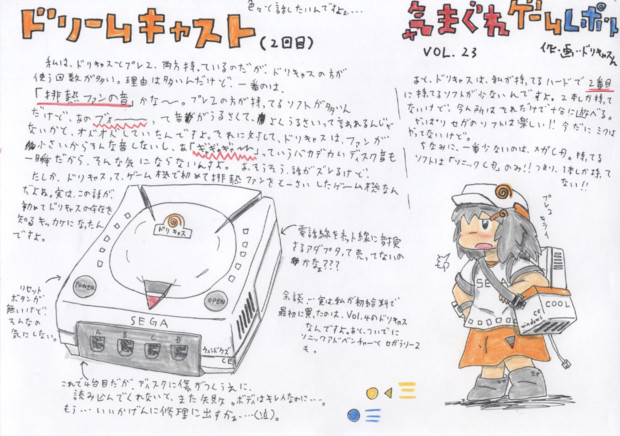 ドリームキャスト(2回目)
色々と話したいんですよ…
気まぐれゲームレポート
VOL.23
作・画・ドリキャスくん
私は、ドリキャスとプレ2、両方持っているのだが、ドリキャスの方が
使う回数が多い。理由は多いんだけど、一番のは、
「排熱ファンの音」かな〜。プレ2の方が持ってるソフトが多いん
だけど、あの
って音がうるさくて、
ないかと、オドオドしていたんですよ。それに対して、ドリキャスは、ファンが
小さいからそんな音しないし、あ
っていうバカデカいディスク音も
一瞬だから、そんな気にならないんすよ。あ、そうそう、話がズレるけど、
たしか、ドリキャスって、ゲーム機で初めて排熱ファンを
だよね。実は、この話が、
初めてドリキャスの存在を
知るキッカケになったん
ですよ。
あと、ドリキャスは、私が持ってるハードで2番目
に持ってるソフトが少ないんですよ。
ないけど、今んとこはそれだけで十分に遊べる。
やっぱりセガのソフトは楽しい!!
やってないけど。
ちなみに、一番少ないのは、メガCD。持ってる
ソフトは「ソニックCD」のみ!!つまり、1本しか持って
ない!!
電話線をネット線に対換
するアダプタって売ってないの
かなぁ???
リセット
ボタンが
無いけど、
そんなの
気にしない。
ドリキャス
POWER
OPEN
SEGA
A B C D
ウィンドウズ
CE
余談…実は私が初給料で
最初に買ったのは、Vol.4のドリキャス
なんですよ。あと、ついでに
ソニックアドベンチャーとセガラリー2
も。
これで4台目だが、ディスクに傷がつくうえに、
読み込んでくれないで、また失敗。ボディはキレイなのに…。
もう…いいかげんに修理に出すかぁ…(泣)。
プレ2
キライ
SE
COOL
CE
windows